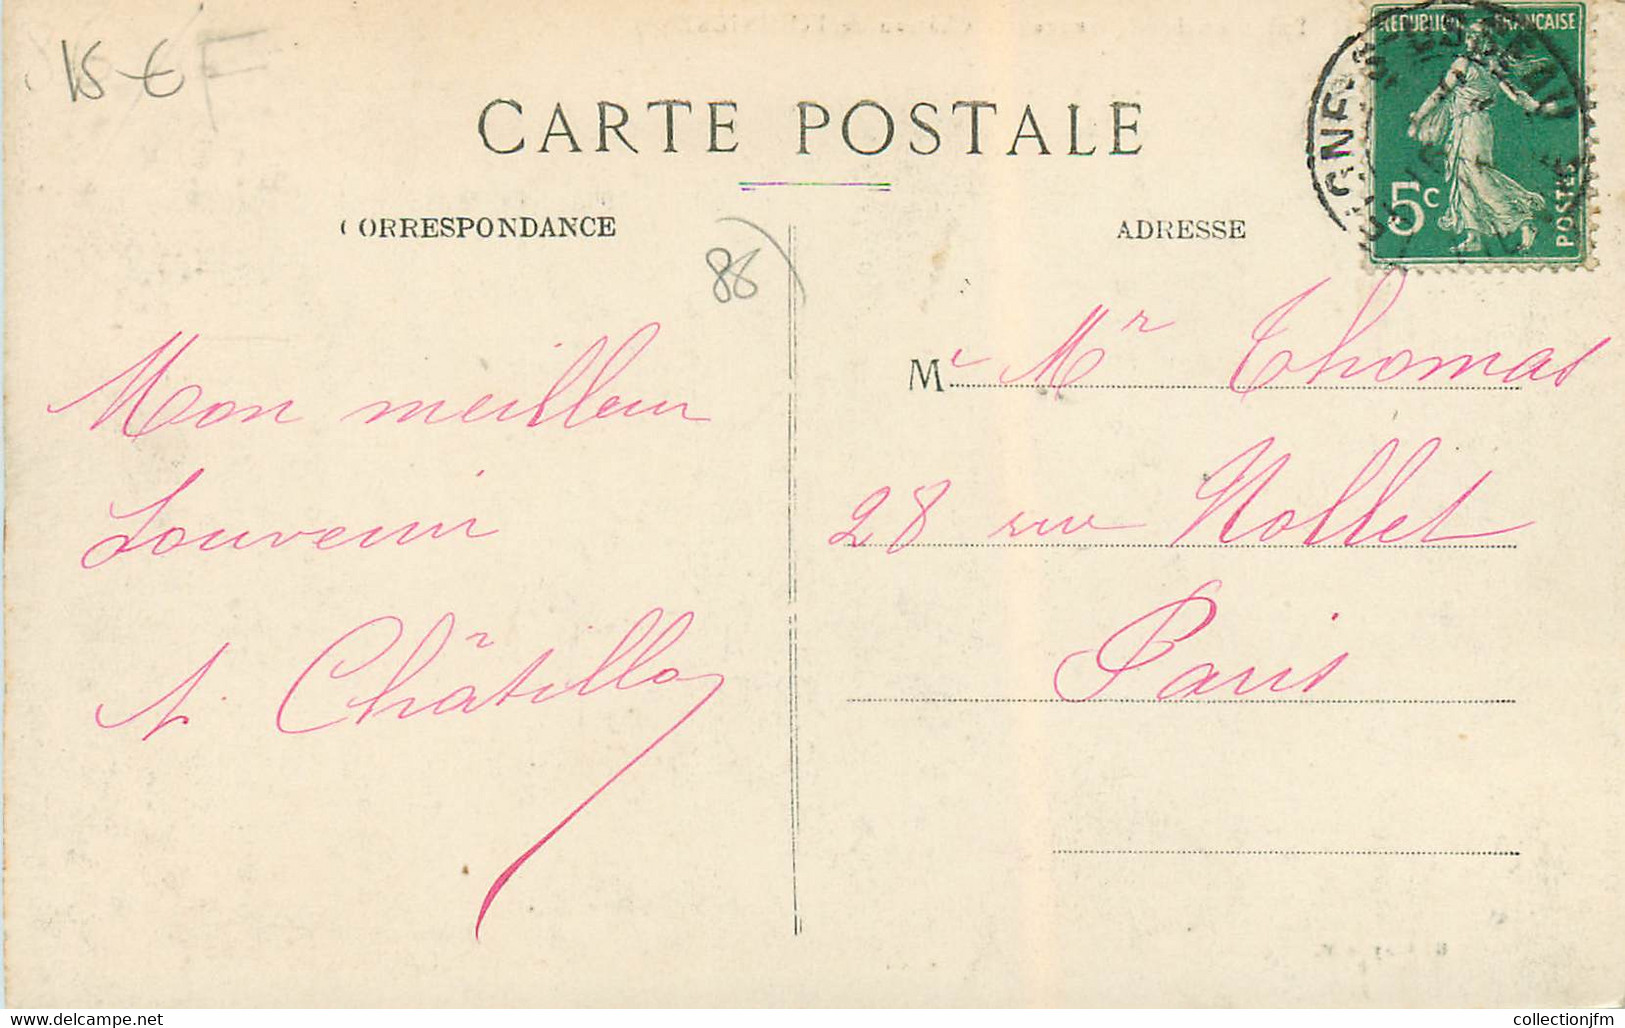 15 €
CARTE POSTALE
CORRESPONDANCE
ADRESSE
86
REPUBLIQUE FRANCAISE
5c
POSTES
Mon meilleur
Souvenir
A. Châtillo
M
Mr Thomas
28 rue Nollet
Paris
collectionjfm